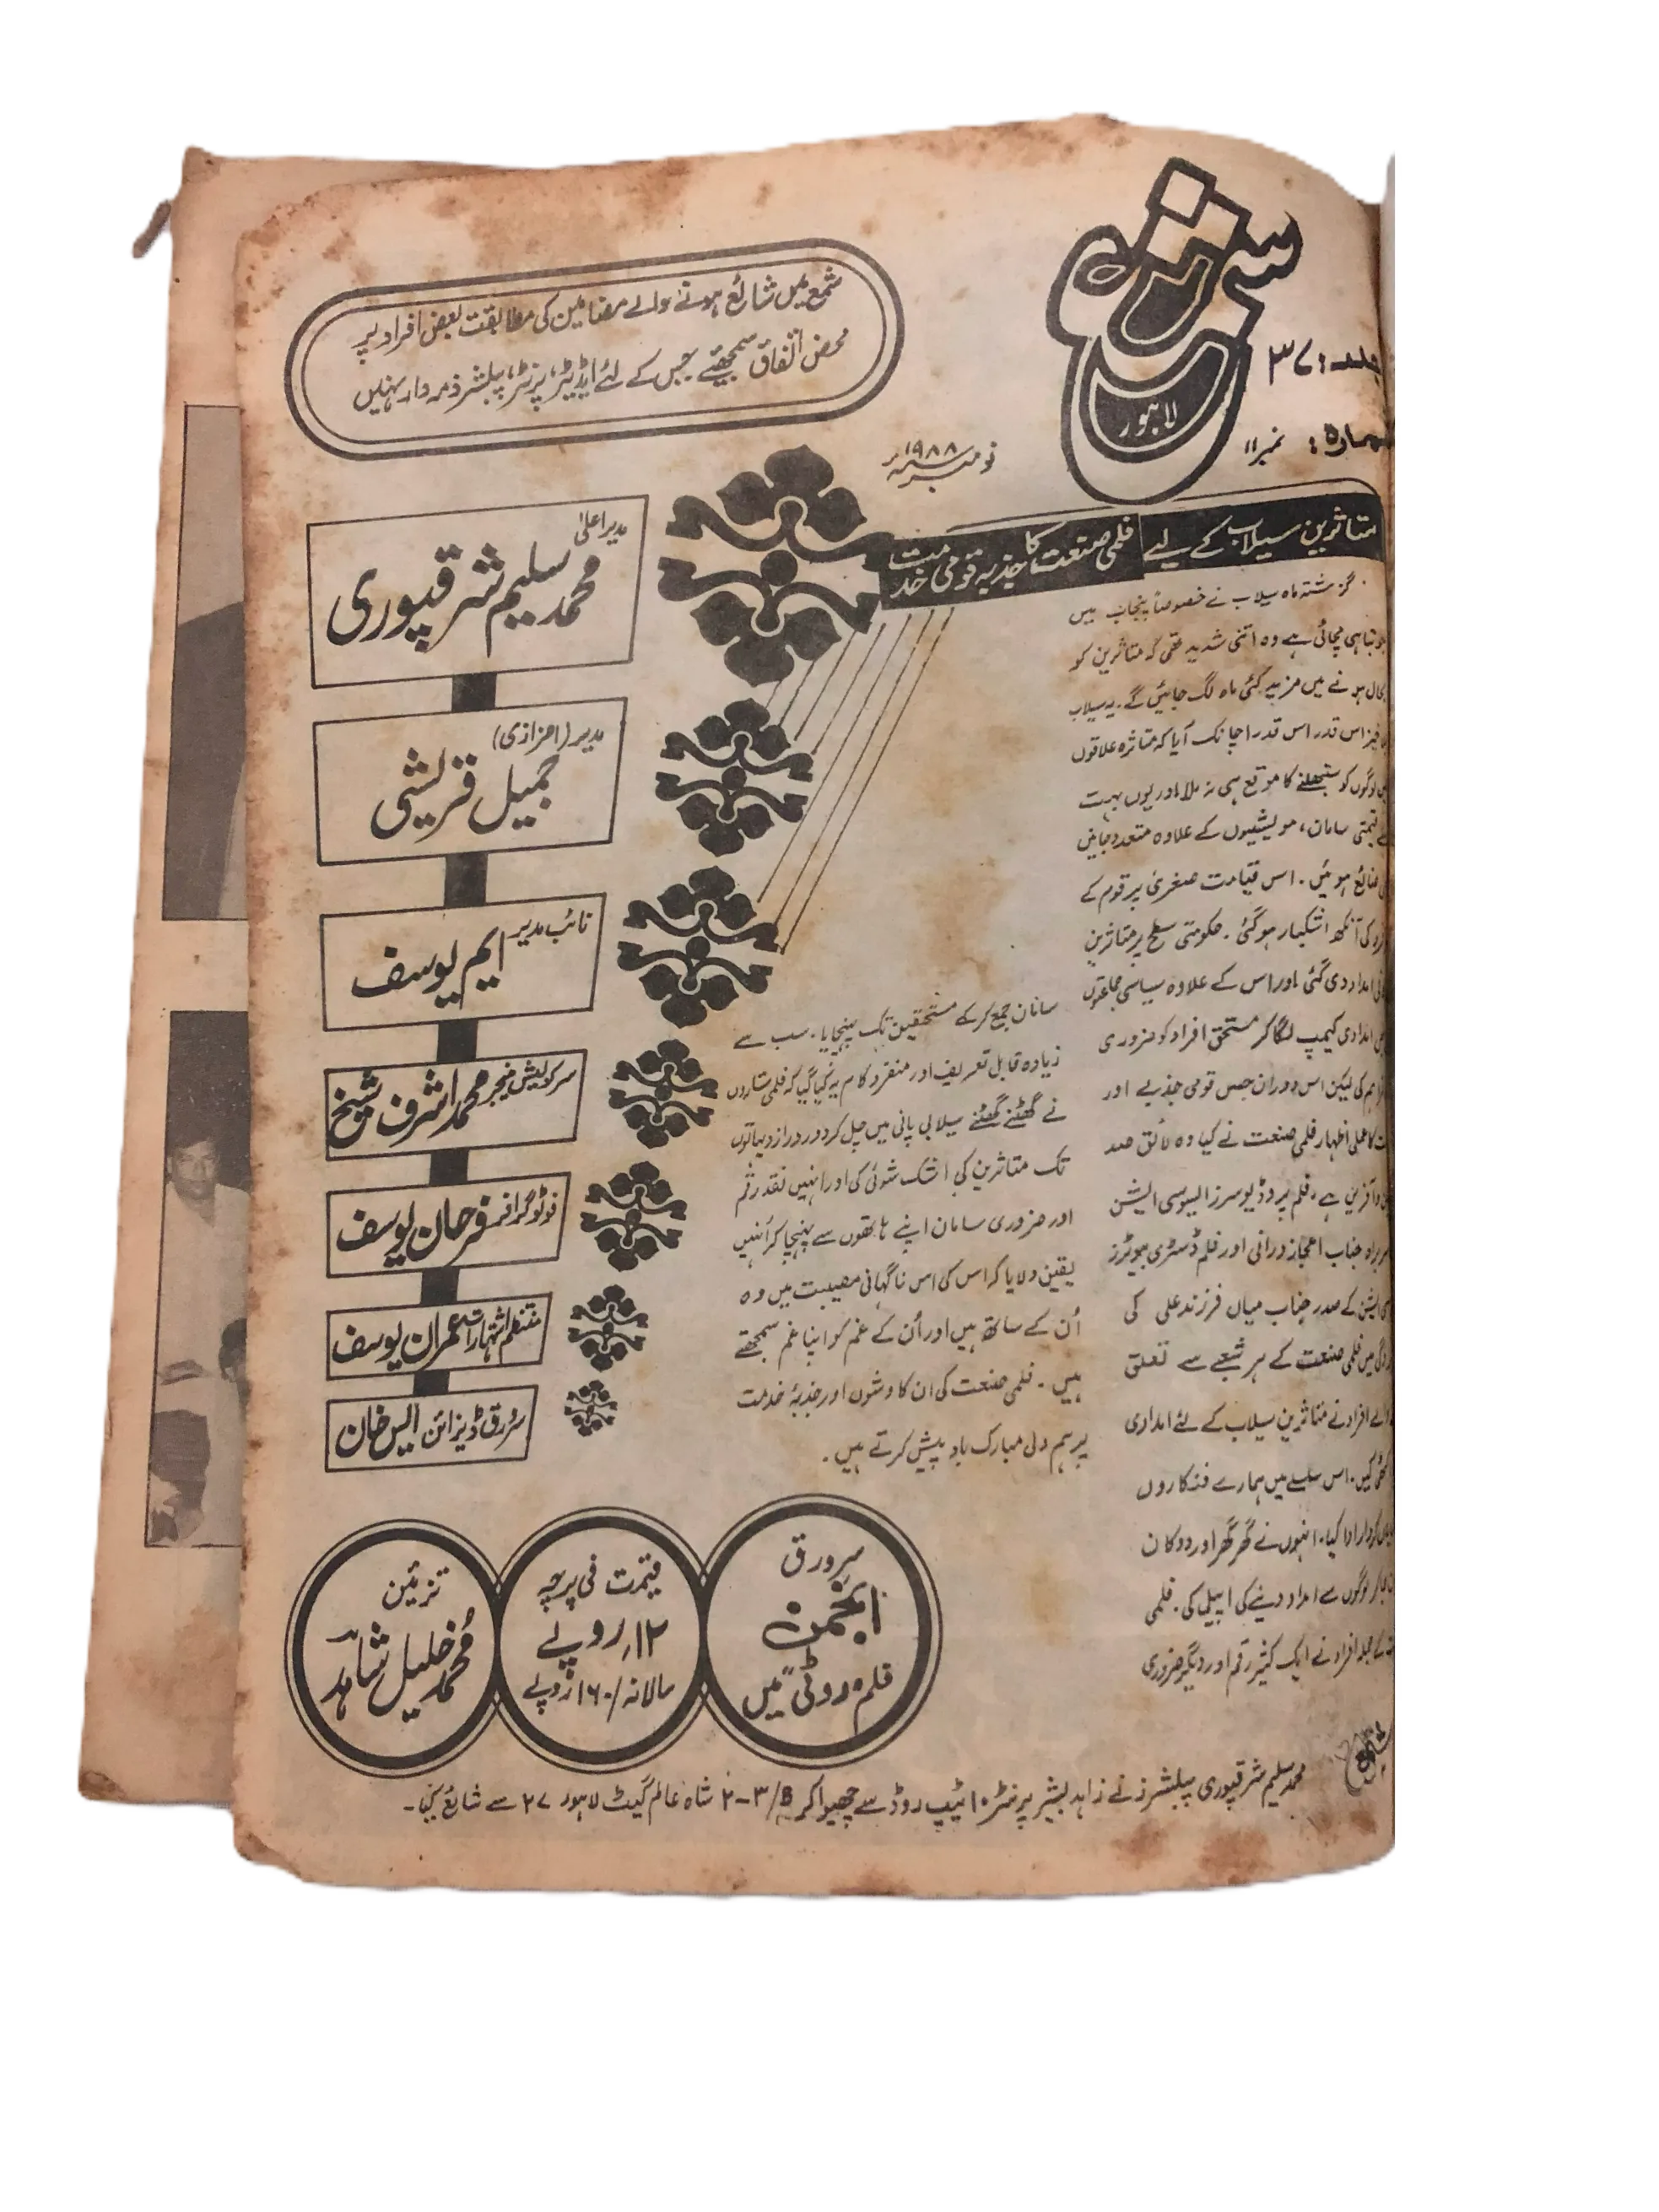 شمع
لاہور
جلد: ۳۷
شمارہ: نمبر ۱۱
نومبر ۱۹۸۸
شمع میں شائع ہونے والے مضامین کی مطابقت بعض افراد پر
محض اتفاق سمجھئے جس کے لئے ایڈیٹر، پرنٹر، پبلشر ذمہ دار نہیں
متاثرین سیلاب کے لیے فلمی صنعت کا جذبہ قومی خدمت
گزشتہ ماہ سیلاب نے خصوصاً پنجاب میں
جو تباہی مچائی ہے وہ اتنی شدید تھی کہ متاثرین کو
بحال ہونے میں مزید کئی ماہ لگ جائیں گے۔ یہ سیلاب
اس قدر اس قدر اچانک آیا کہ متاثرہ علاقوں
لوگوں کو سنبھلنے کا موقع ہی نہ ملا اور یوں بہت
قیمتی سامان، مویشیوں کے علاوہ متعدد جانیں
ضائع ہوئیں۔ اس قیامت صغریٰ پر قوم کے
کی آنکھ اشکبار ہو گئی۔ حکومتی سطح پر متاثرین
امداد دی گئی اور اس کے علاوہ سیاسی جماعتوں
امدادی کیمپ لگا کر مستحق افراد کو ضروری
کی لیکن اس دوران جس قومی جذبے اور
کا عملی اظہار فلمی صنعت نے کیا وہ لائق صد
آفرین ہے۔ فلم پروڈیوسرز ایسوسی ایشن
سربراہ جناب اعجاز درانی اور فلم ڈسٹری بیوٹرز
ایشن کے صدر جناب میاں فرزند علی کی
میں فلمی صنعت کے ہر شعبے سے تعلق
والے افراد نے متاثرین سیلاب کے لئے امدادی
کیں۔ اس سلسلے میں ہمارے فنکاروں
کردار ادا کیا۔ انہوں نے گھر گھر اور دوکان
جا کر لوگوں سے امداد دینے کی اپیل کی۔ فلمی
کے جملہ افراد نے ایک کثیر رقم اور دیگر ضروری
سامان جمع کر کے مستحقین تک پہنچایا۔ سب سے
زیادہ قابل تعریف اور منفرد کام یہ کیا گیا کہ فلمی ستاروں
نے گھٹنے گھٹنے سیلابی پانی میں چل کر دور دراز دیہاتوں
تک متاثرین کی اشک شوئی کی اور انہیں نقد رقم
اور ضروری سامان اپنے ہاتھوں سے پہنچا کر انہیں
یقین دلایا کہ اس کی اس ناگہانی مصیبت میں وہ
اُن کے ساتھ ہیں اور اُن کے غم کو اپنا غم سمجھتے
ہیں۔ فلمی صنعت کی ان کاوشوں اور جذبۂ خدمت
پر ہم دلی مبارک باد پیش کرتے ہیں۔
مدیر اعلیٰ
محمد سلیم شرقپوری
مدیر (اعزازی)
جمیل قریشی
نائب مدیر ایم یوسف
سرکولیشن منیجر محمد اشرف شیخ
فوٹوگرافر فرحان یوسف
منتظم اشتہارات عمران یوسف
سرورق ڈیزائن ایس خان
سرورق
انجمن
فلم "روٹی" میں
قیمت فی پرچہ
۱۲/ روپے
سالانہ ۱۶۰/ روپے
تزئین
محمد خلیل شاہد
شمع
محمد سلیم شرقپوری پبلشرز نے زاہد بشیر پرنٹر ۱۰ ٹیپ روڈ سے چھپوا کر ۲-۳/B شاہ عالم گیٹ لاہور ۲۷ سے شائع کیا۔